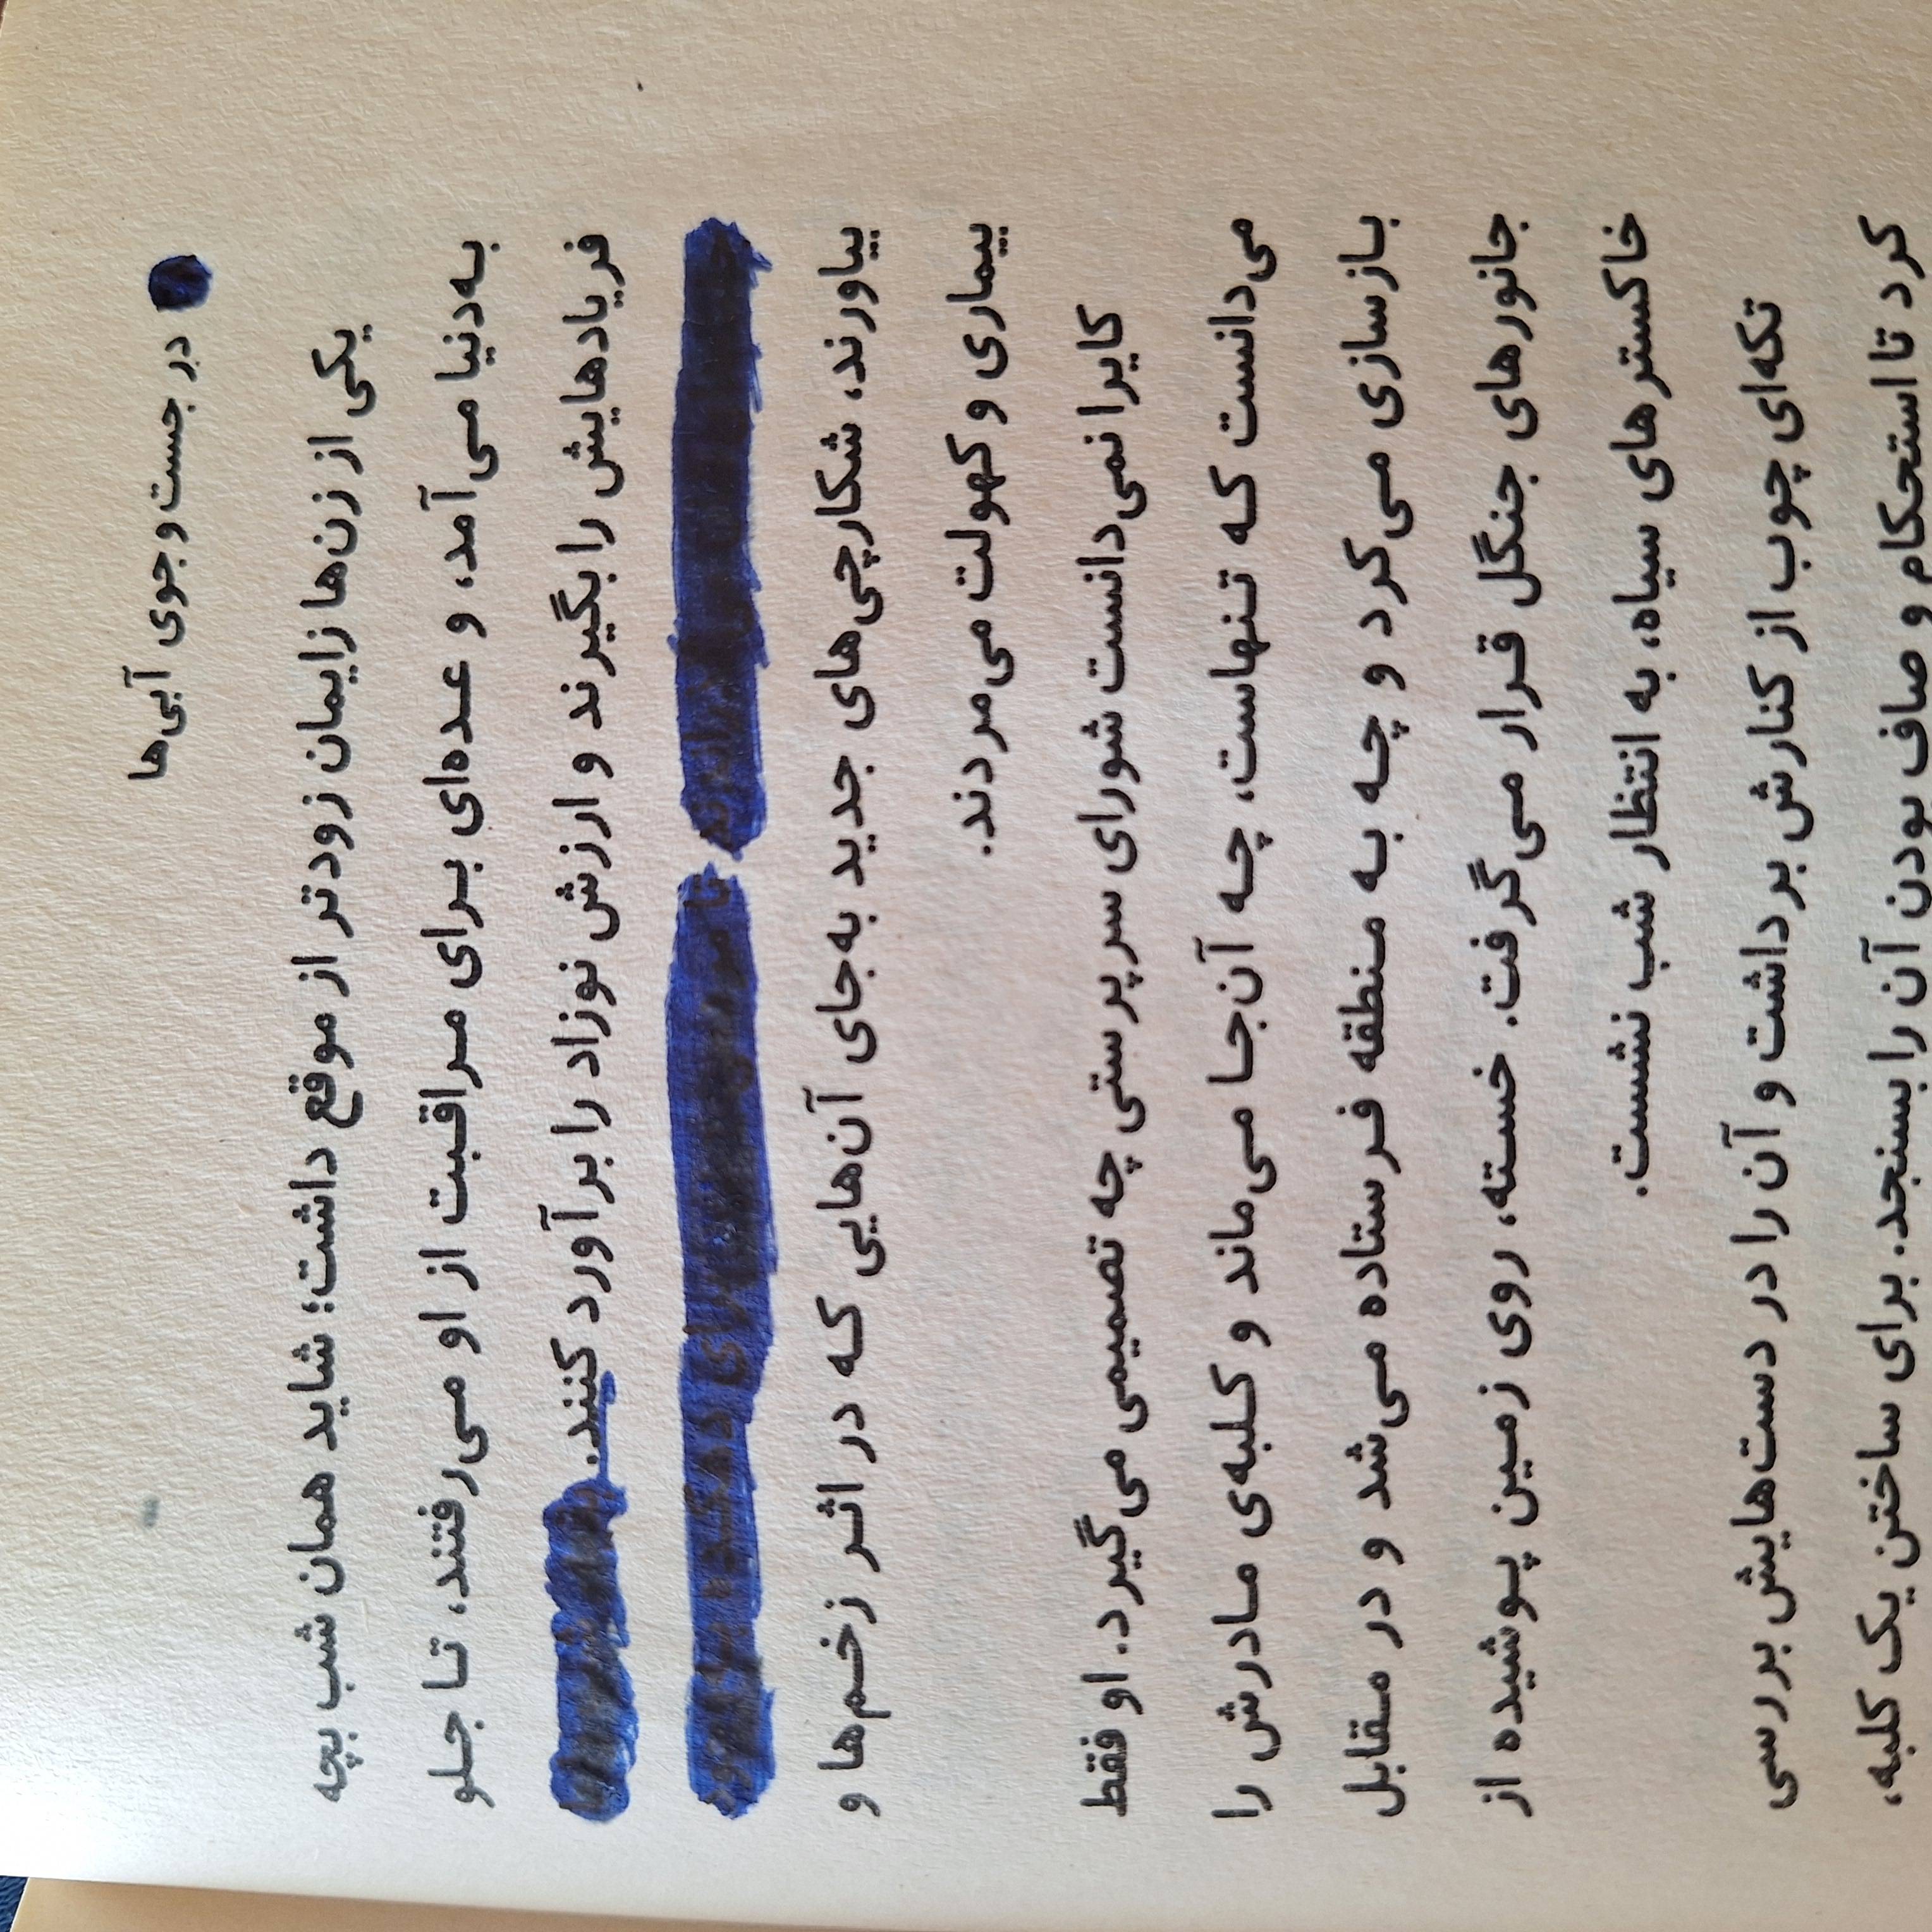 در جست‌وجوی آبی‌ها
یکی از زن‌ها زایمان زودتر از موقع داشت؛ شاید همان شب بچه
به‌دنیا می‌آمد، و عده‌ای برای مراقبت از او می‌رفتند، تا جلو
فریادهایش را بگیرند و ارزش نوزاد را برآورد کنند.
تا برای
بیاورند، شکارچی‌های جدید به‌جای آن‌هایی که در اثر زخم‌ها و
بیماری و کهولت می‌مردند.
کایرا نمی‌دانست شورای سرپرستی چه تصمیمی می‌گیرد. او فقط
می‌دانست که تنهاست، چه آن‌جا می‌ماند و کلبه‌ی مادرش را
بازسازی می‌کرد و چه به منطقه فرستاده می‌شد و در مقابل
جانورهای جنگل قرار می‌گرفت. خسته، روی زمین پوشیده از
خاکسترهای سیاه، به انتظار شب نشست.
تکه‌ای چوب از کنارش برداشت و آن را در دست‌هایش بررسی
کرد تا استحکام و صاف بودن آن را بسنجد. برای ساختن یک کلبه،